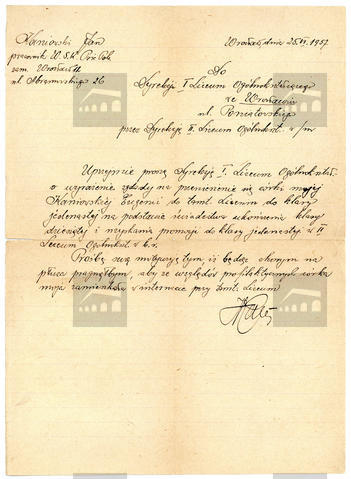 Kaniowski Jan
Wrocław, dnia 25.VI.1957
pracownik W.S.K.
zam. Wrocław
ul. 26
Do
Dyrekcji I Liceum Ogólnokształcącego
we Wrocławiu
ul. Poniatowskiego
przez Dyrekcję II. Liceum Ogólnokszt. w/m
Uprzejmie proszę Dyrekcję I. Liceum Ogólnokształc.
o wyrażenie zgody na przeniesienie się córki mojej
Kaniowskiej Eugenii do tamt. Liceum do klasy
jedenastej na podstawie świadectwa ukończenia klasy
dziesiątej i uzyskania promocji do klasy jedenastej w II
Liceum Ogólnokszt. w b.r.
Prośbę swą motywuję tym, iż będąc chorym na
płuca pragnąłbym, aby ze względów profilaktycznych córka
moja zamieszkała w internacie przy tamt. Liceum